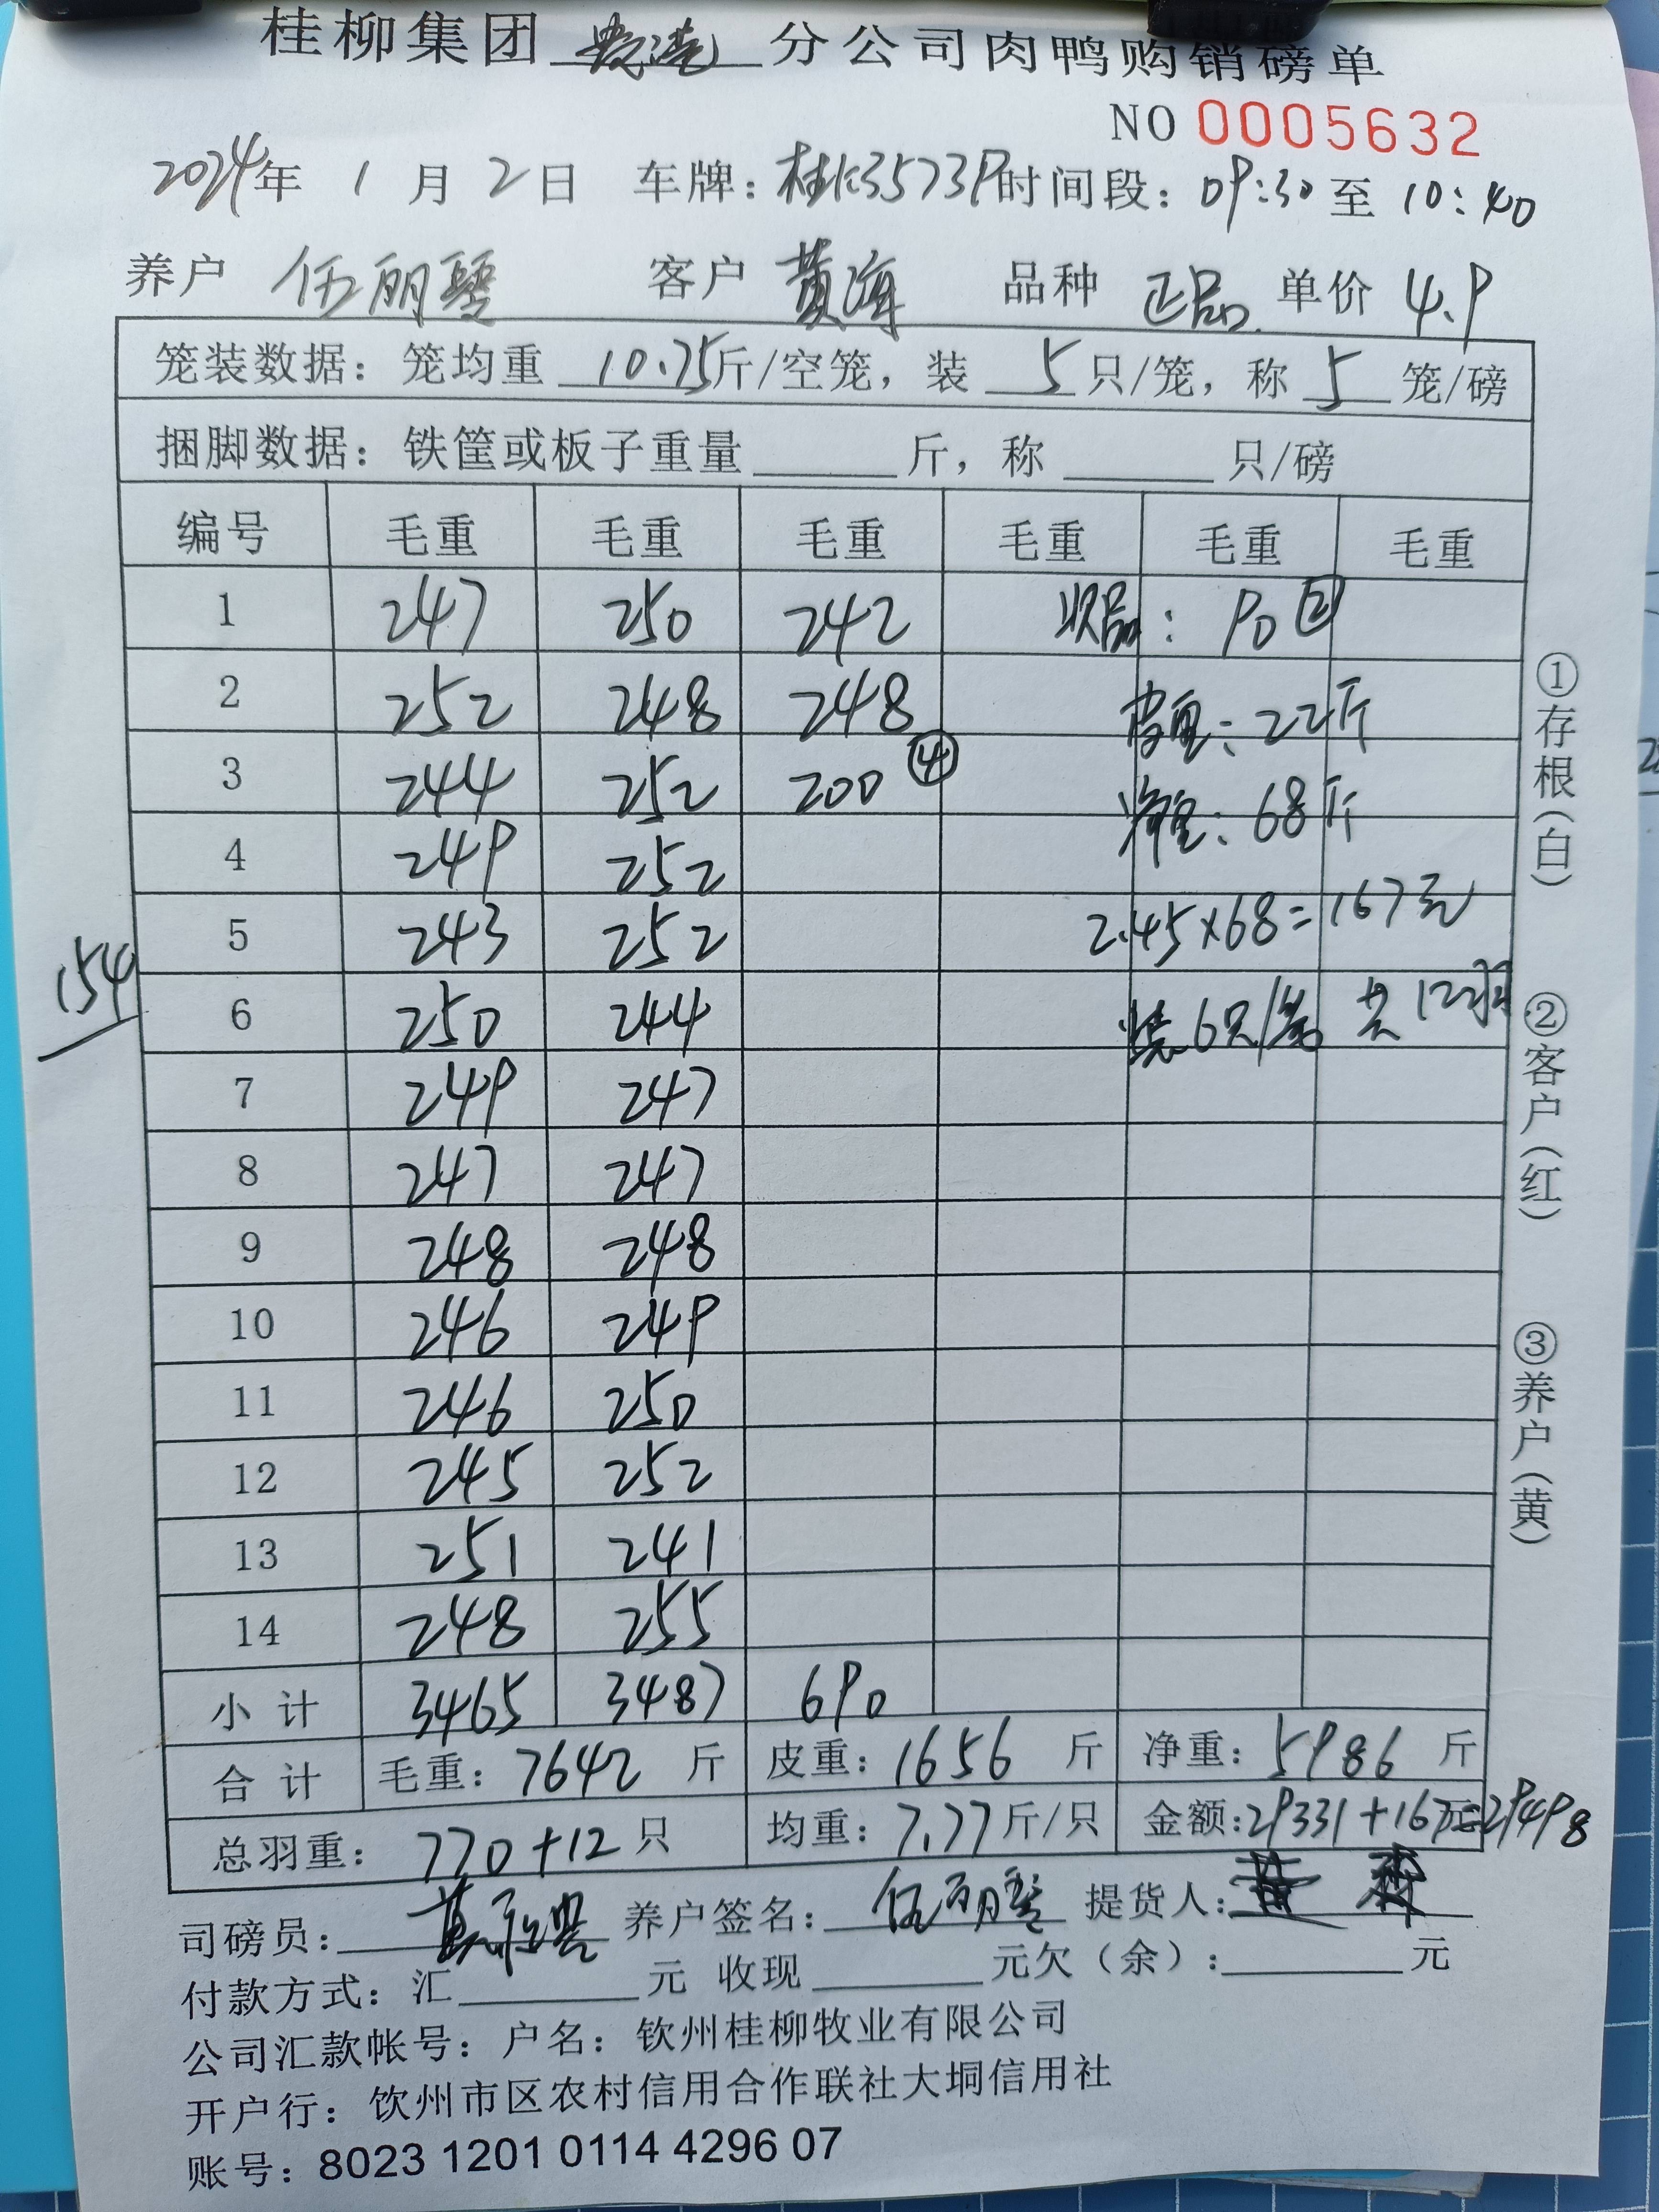 桂柳集团 分公司肉鸭购销磅单
NO 0005632
2024年 1 月 2 日 车牌:桂K35739 时间段:09:30 至 10:40
养户 伍丽 客户 黄海 品种 正品 单价 4.9
笼装数据:笼均重 10.75 斤/空笼,装 5 只/笼,称 5 笼/磅
捆脚数据:铁筐或板子重量 斤,称 只/磅
编号 毛重 毛重 毛重 毛重 毛重 毛重
1 247 250 242 次品: 90 ②
2 252 248 248 皮重: 22斤
3 244 252 200 ④ 净重: 68斤
4 249 252
5 243 252 2.45×68=167元
154
6 250 244 装6只/笼 共12羽
7 249 247
8 247 247
9 248 248
10 246 249
11 246 250
12 245 252
13 251 241
14 248 255
小计 3465 3487 690
合计 毛重: 7642 斤 皮重: 1656 斤 净重: 5986 斤
总羽重: 770+12 只 均重: 7.77 斤/只 金额: 29331+167元=29498
司磅员: 养户签名: 伍丽 提货人: 黄
付款方式:汇 元 收现 元欠(余): 元
公司汇款帐号:户名:钦州桂柳牧业有限公司
开户行:钦州市区农村信用合作联社大垌信用社
账号:8023 1201 0114 4296 07
①存根(白)
②客户(红)
③养户(黄)